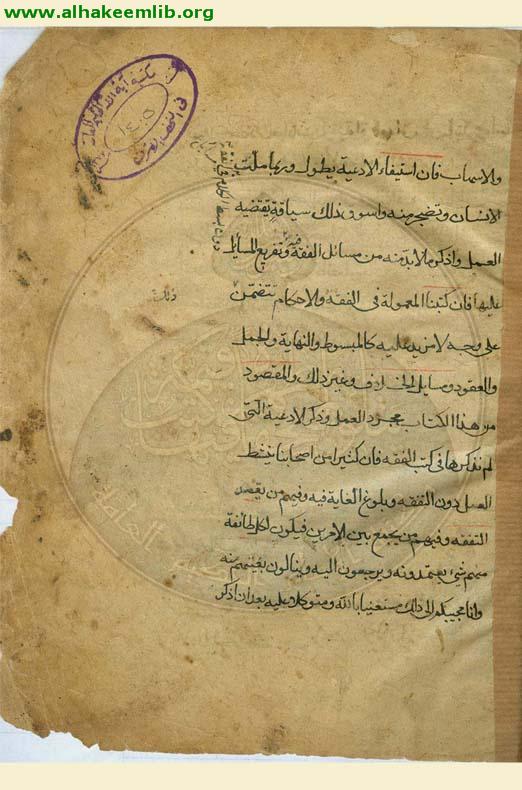 www.alhakeemlib.org
والاسهاب فان استيفاء الادعية يطول وربما ملت
الانسان وتضجر منه واسوق ذلك سياقة يقتضيه
العمل واذكر ما لابد منه من مسائل الفقه وتفريع المسائل
عليها فان كتبنا المعمولة فى الفقه والاحكام تتضمن
على وجه لا مزيد عليه كالمبسوط والنهاية والجمل
والعقود ومسايل الخلاف وغير ذلك والمقصود
من هذا الكتاب مجرد العمل وذكر الادعية التى
لم نذكرها فى كتب الفقه فان كثيرا من اصحابنا ينشط
العمل دون التفقه وبلوغ الغاية فيه وفيهم من يقصد
التفقه وفيهم من يجمع بين الامرين فيكون لكل طائفة
منهم شئ يعتمدونه ويرجعون اليه وينالون بغيتهم منه
وانا مجيبكم الى ذلك مستعينا بالله ومتوكلا عليه بعد ان اذكر
ذلك